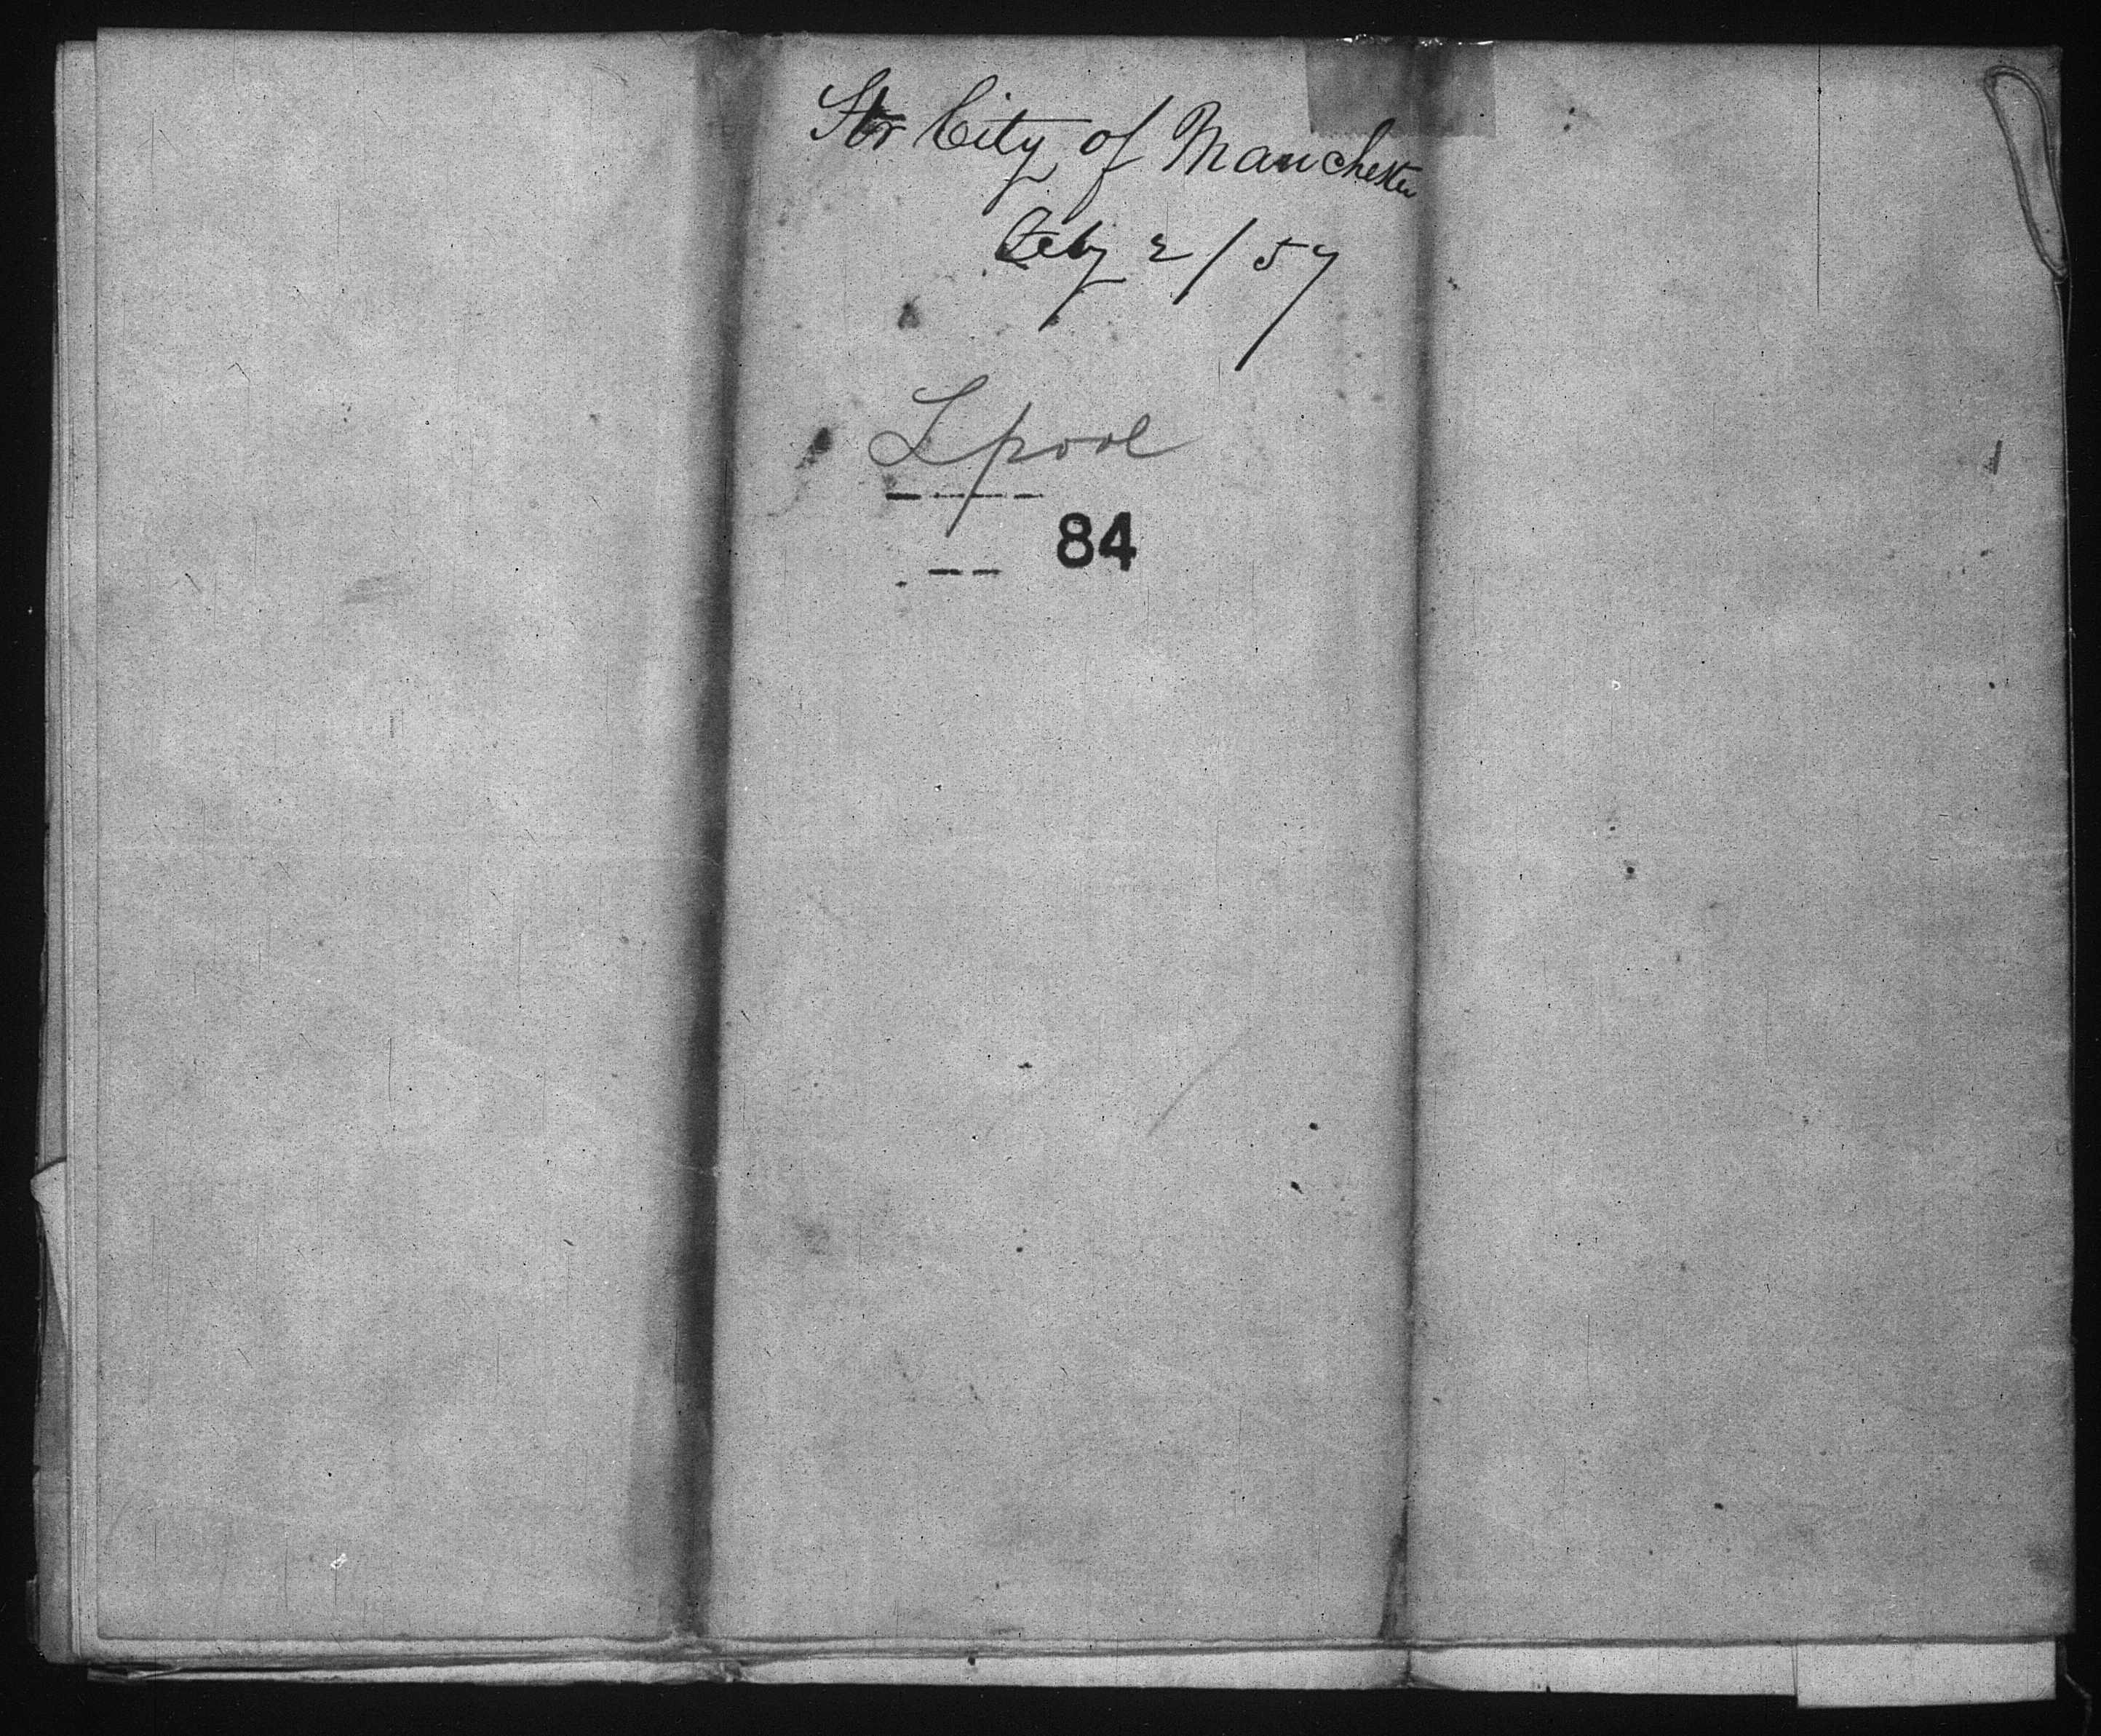 Str City of Manchester
Feby 2/57
Lpool
84